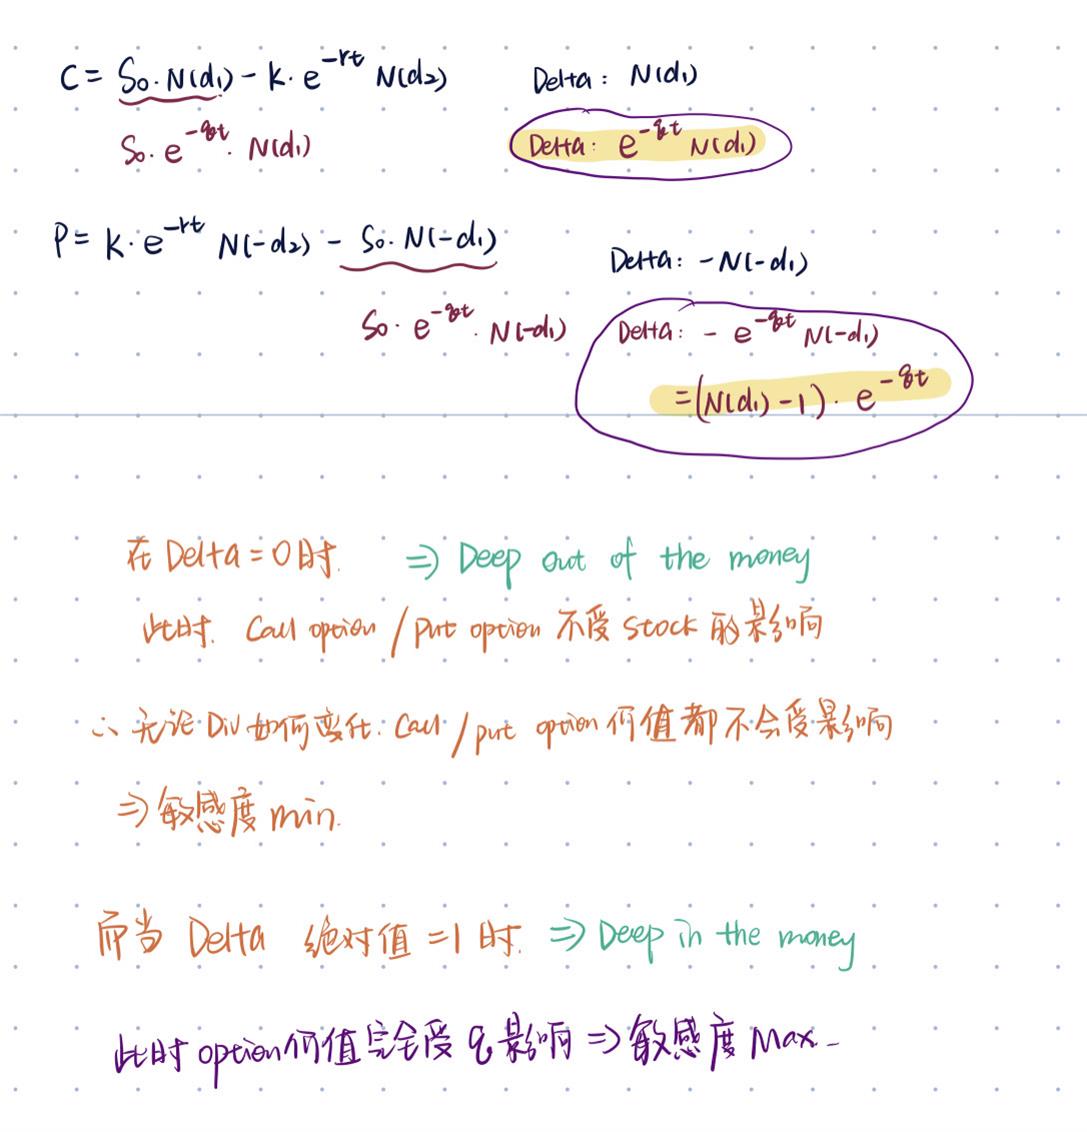 C = S₀·N(d₁) - K·e^{-rt} N(d₂)    Delta: N(d₁)
S₀·e^{-qt}·N(d₁)    Delta: e^{-qt} N(d₁)
P = K·e^{-rt} N(-d₂) - S₀·N(-d₁)    Delta: -N(-d₁)
S₀·e^{-qt}·N(-d₁)    Delta: -e^{-qt} N(-d₁)
=(N(d₁)-1)·e^{-qt}
在 Delta = 0 时. ⇒ Deep out of the money
此时. Call option / put option 不受 stock 的影响
∴ 无论 Div 如何变化. Call / put option 价值都不会受影响
⇒ 敏感度 min.
而当 Delta 绝对值 = 1 时. ⇒ Deep in the money
此时 option 价值完全受 q 影响 ⇒ 敏感度 Max.